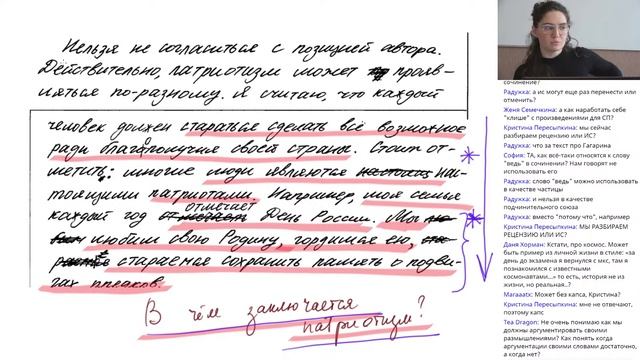 Нельзя не согласиться с позицией автора.
Действительно, патриотизм может прояв-
ляться по-разному. Я считаю, что каждый
человек должен стараться сделать всё возможное
ради благополучия своей страны. Стоит от-
метить: многие люди являются нас-
тоящими патриотами. Например, моя семья
отмечает
каждый год День России. Мы
любим свою Родину, гордимся ею,
стараемся сохранить память о подви-
гах предков.
В чём заключается
патриотизм?
сочинение?
Радужка: а ис могут еще раз перенести или
отменить?
Женя Семечкина: а как наработать себе
"клише" с произведениями для СП?
Кристина Пересыпкина: мы сейчас
разбираем рецензию или ИС?
Радужка: что за текст про Гагарина
София: ТА, как всё-таки относятся к слову
"ведь" в сочинении? Нам говорят не
использовать его
Радужка: слово "ведь" можно использовать
в качестве частицы
Радужка: и нельзя в качестве
подчинительного союза
Радужка: вместо "потому что", например
Кристина Пересыпкина: МЫ РАЗБИРАЕМ
РЕЦЕНЗИЮ ИЛИ ИС?
Даня Хорман: Кстати, про космос. Может
быть пример из личной жизни в стиле: «за
день до экзамена я вернулся с мкс, там я
познакомился с известными
космонавтами...» то есть, история не из
жизни, но реальная..?
Maraaatx: Может без капса, Кристина?
Кристина Пересыпкина: мне не отвечают,
поэтому капс
Tea Dragon: Не очень понимаю как мы
должны аргументировать своими
размышлениями? Как понять когда
аргументации своими словами достаточно,
а когда нет?